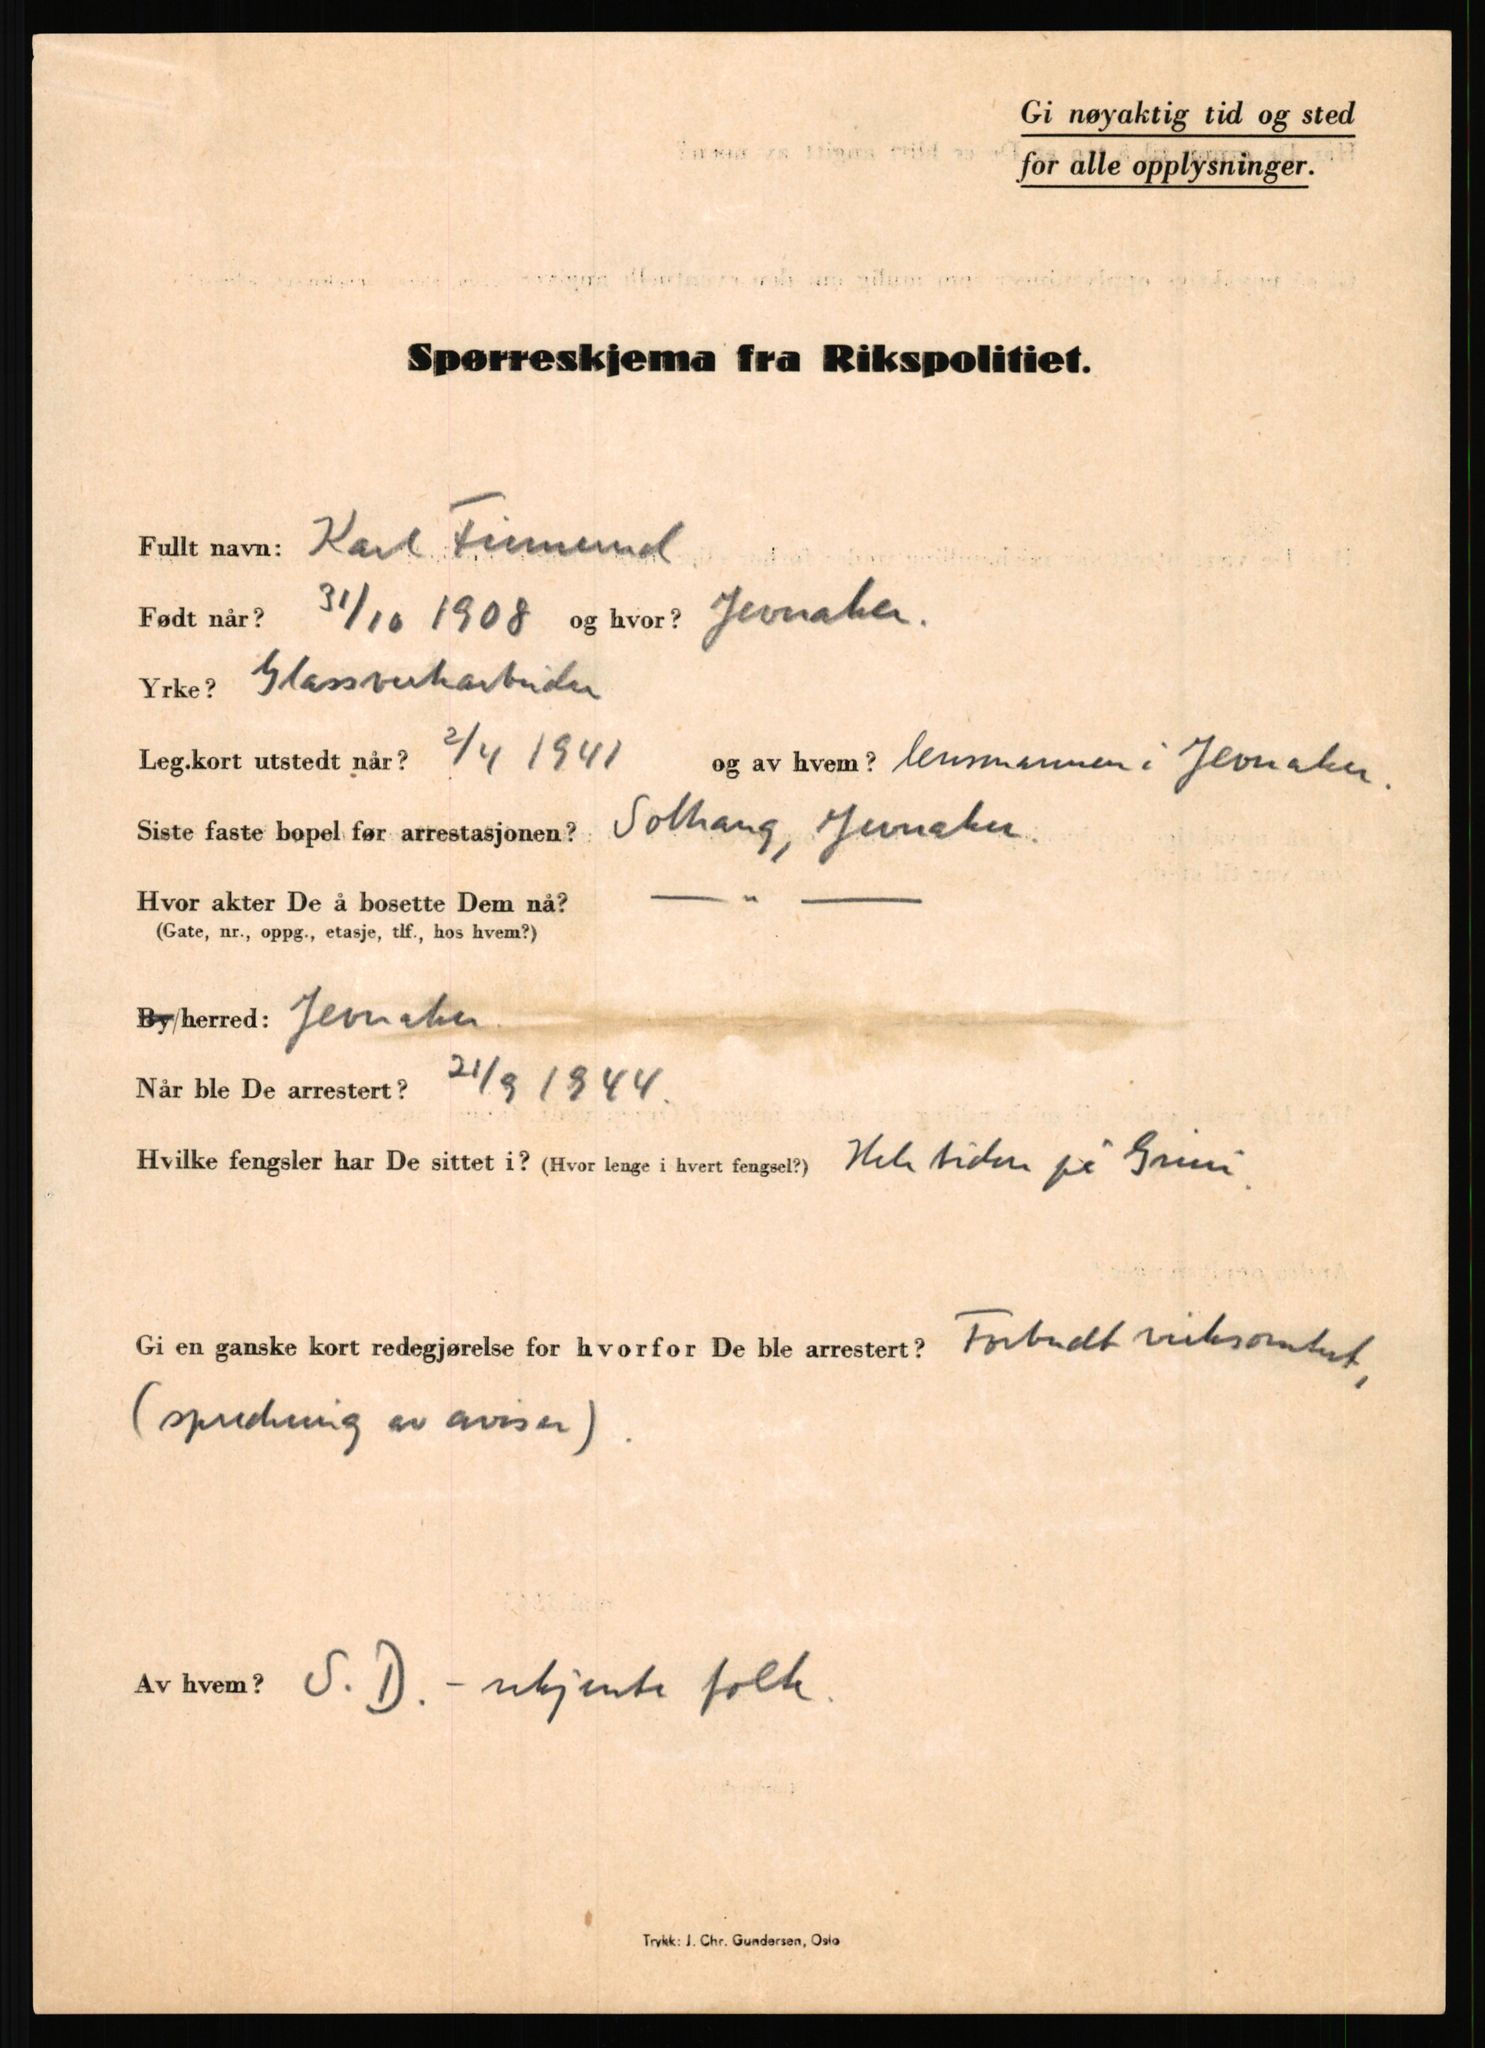 Gi nøyaktig tid og sted
for alle opplysninger.
Spørreskjema fra Rikspolitiet.
Fullt navn: Karl Finnerud
Født når? 31/10 1908 og hvor? Jevnaker.
Yrke? Glassverkarbeider
Leg.kort utstedt når? 2/4 1941 og av hvem? lensmannen i Jevnaker.
Siste faste bopel før arrestasjonen? Solhaug, Jevnaker.
Hvor akter De å bosette Dem nå? — " —
(Gate, nr., oppg., etasje, tlf., hos hvem?)
By/herred: Jevnaker
Når ble De arrestert? 21/9 1944.
Hvilke fengsler har De sittet i? (Hvor lenge i hvert fengsel?) Hele tiden på Grini.
Gi en ganske kort redegjørelse for hvorfor De ble arrestert? Forbudt virksomhet,
(spredning av aviser).
Av hvem? S. D. – ukjente folk.
Trykk: J. Chr. Gundersen, Oslo